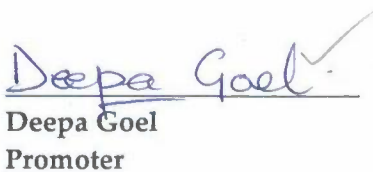 Deepa Goel
Deepa Goel
Promoter